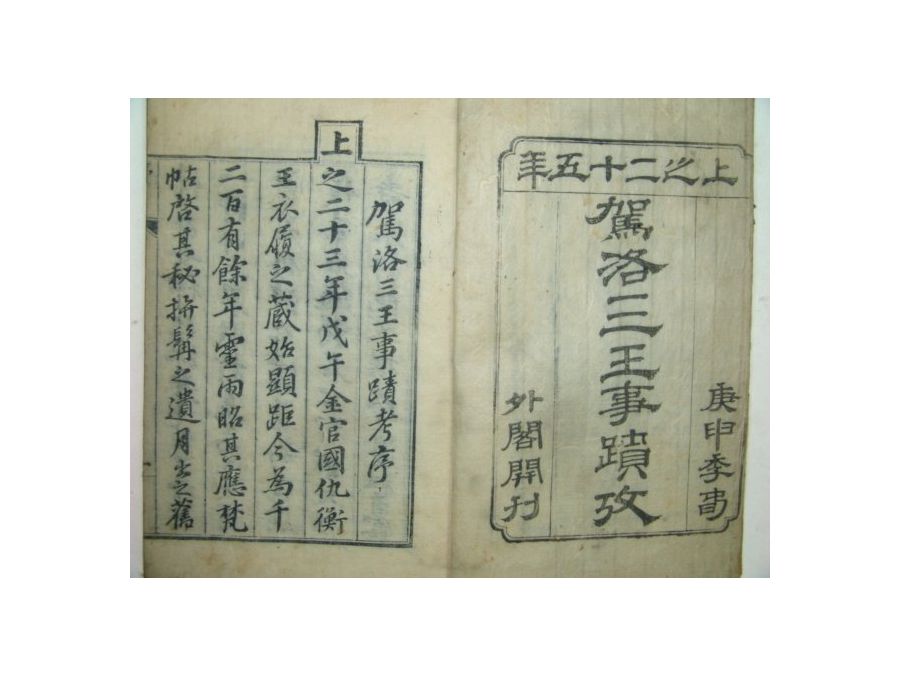 上之二十五年
庚申季旾
駕洛三王事蹟攷
外閣開刊
駕洛三王事蹟考序
上
之二十三年戊午金官國仇衡
王衣履之蔵始顯距今為千
二百有餘年靈雨昭其應梵
帖啓其秘拚髯之遺月出之舊